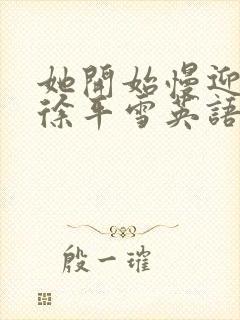 她開始慢迎
徐平雪英語
殷一璀